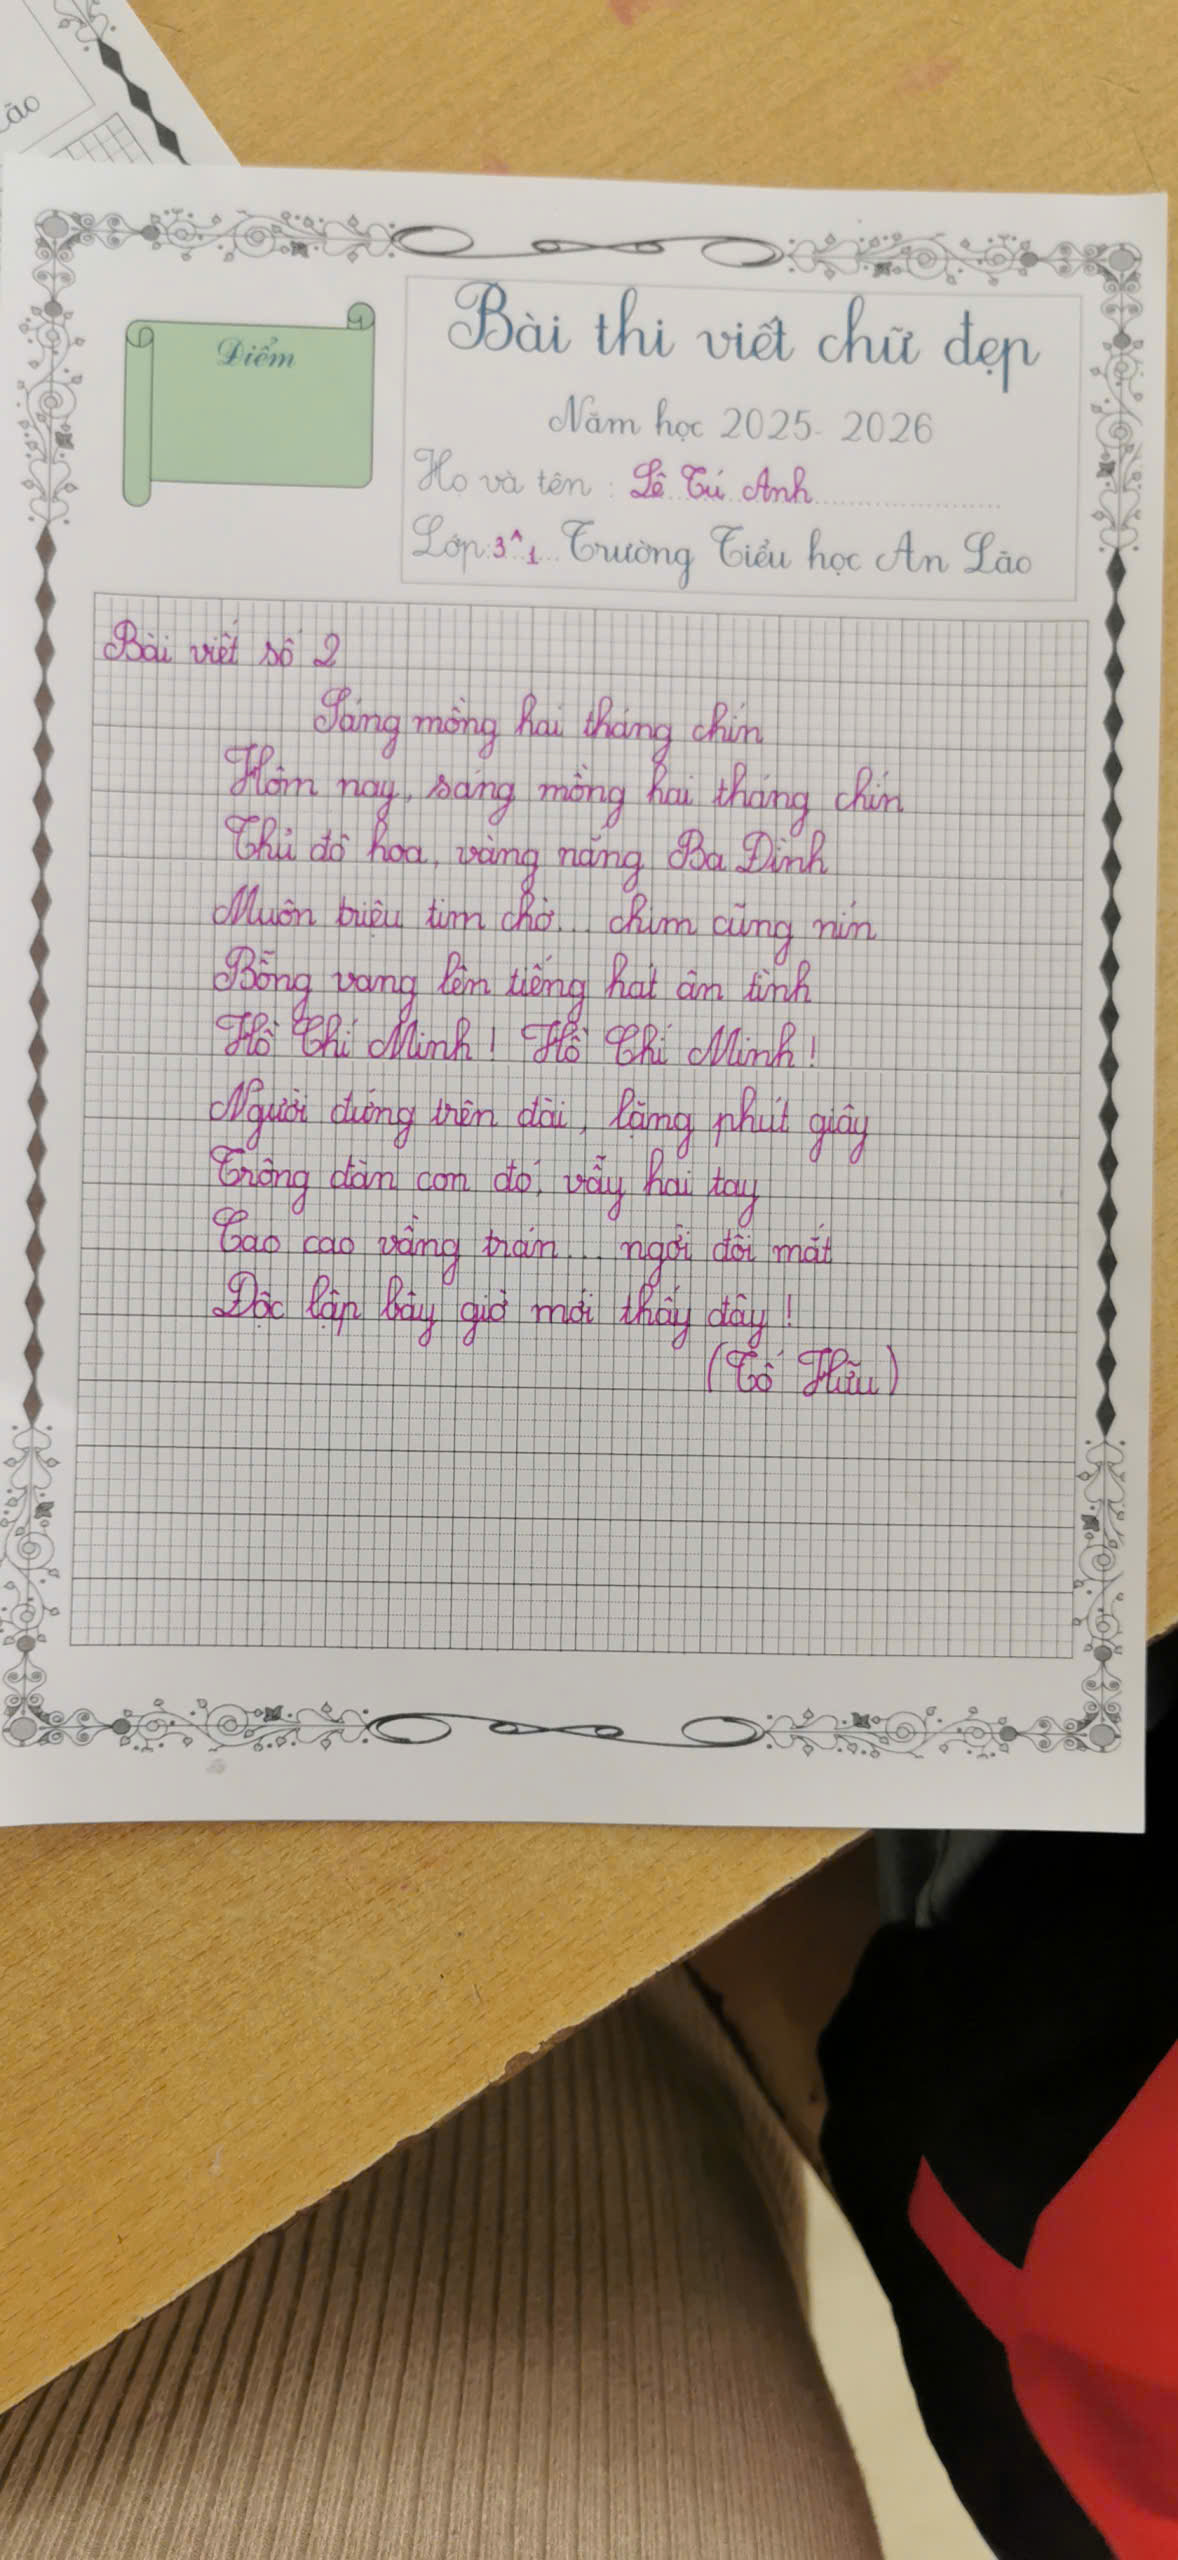 ão
Điểm
Bài thi viết chữ đẹp
Năm học 2025- 2026
Họ và tên : Lê Tú Anh
Lớp: 3^1 Trường Tiểu học An Lão
Bài viết số 2
Sáng mồng hai tháng chín
Hôm nay, sáng mồng hai tháng chín
Thủ đô hoa, vàng nắng Ba Đình
Muôn triệu tim chờ... chim cũng nín
Bỗng vang lên tiếng hát ân tình
Hồ Chí Minh! Hồ Chí Minh!
Người đứng trên đài, lặng phút giây
Trông đàn con đó, vẫy hai tay
Cao cao vầng trán... ngời đôi mắt
Độc lập bây giờ mới thấy đây!
(Tố Hữu)